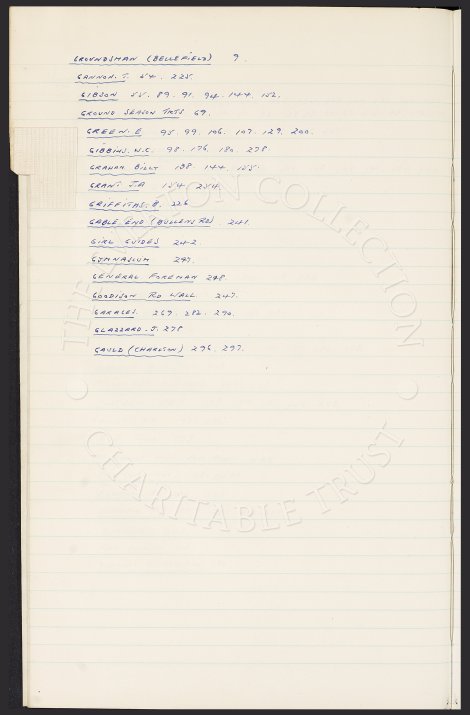 GROUNDSMAN (BELLEFIELD) 9.
GANNON. T. 54. 225.
GIBSON 55. 89. 91. 94. 144. 152.
GROUND SEASON TKTS 69.
GREEN. E. 95. 99. 106. 107. 129. 200.
GIBBINS. W.C. 98. 176. 180. 278.
GRAHAM. BILLY 138. 144. 155.
GRANT J.A 154. 254.
GRIFFITHS. B. 226
GABLE END (BULLENS RD) 241.
GIRL GUIDES 242.
GYMNASIUM 247.
GENERAL FOREMAN 248.
GOODISON RD. WALL. 247.
GARAGES. 269. 282. 290.
GLAZZARD. J. 278
GAULD (CHARLTON) 296. 297.
THE EVERTON COLLECTION
CHARITABLE TRUST